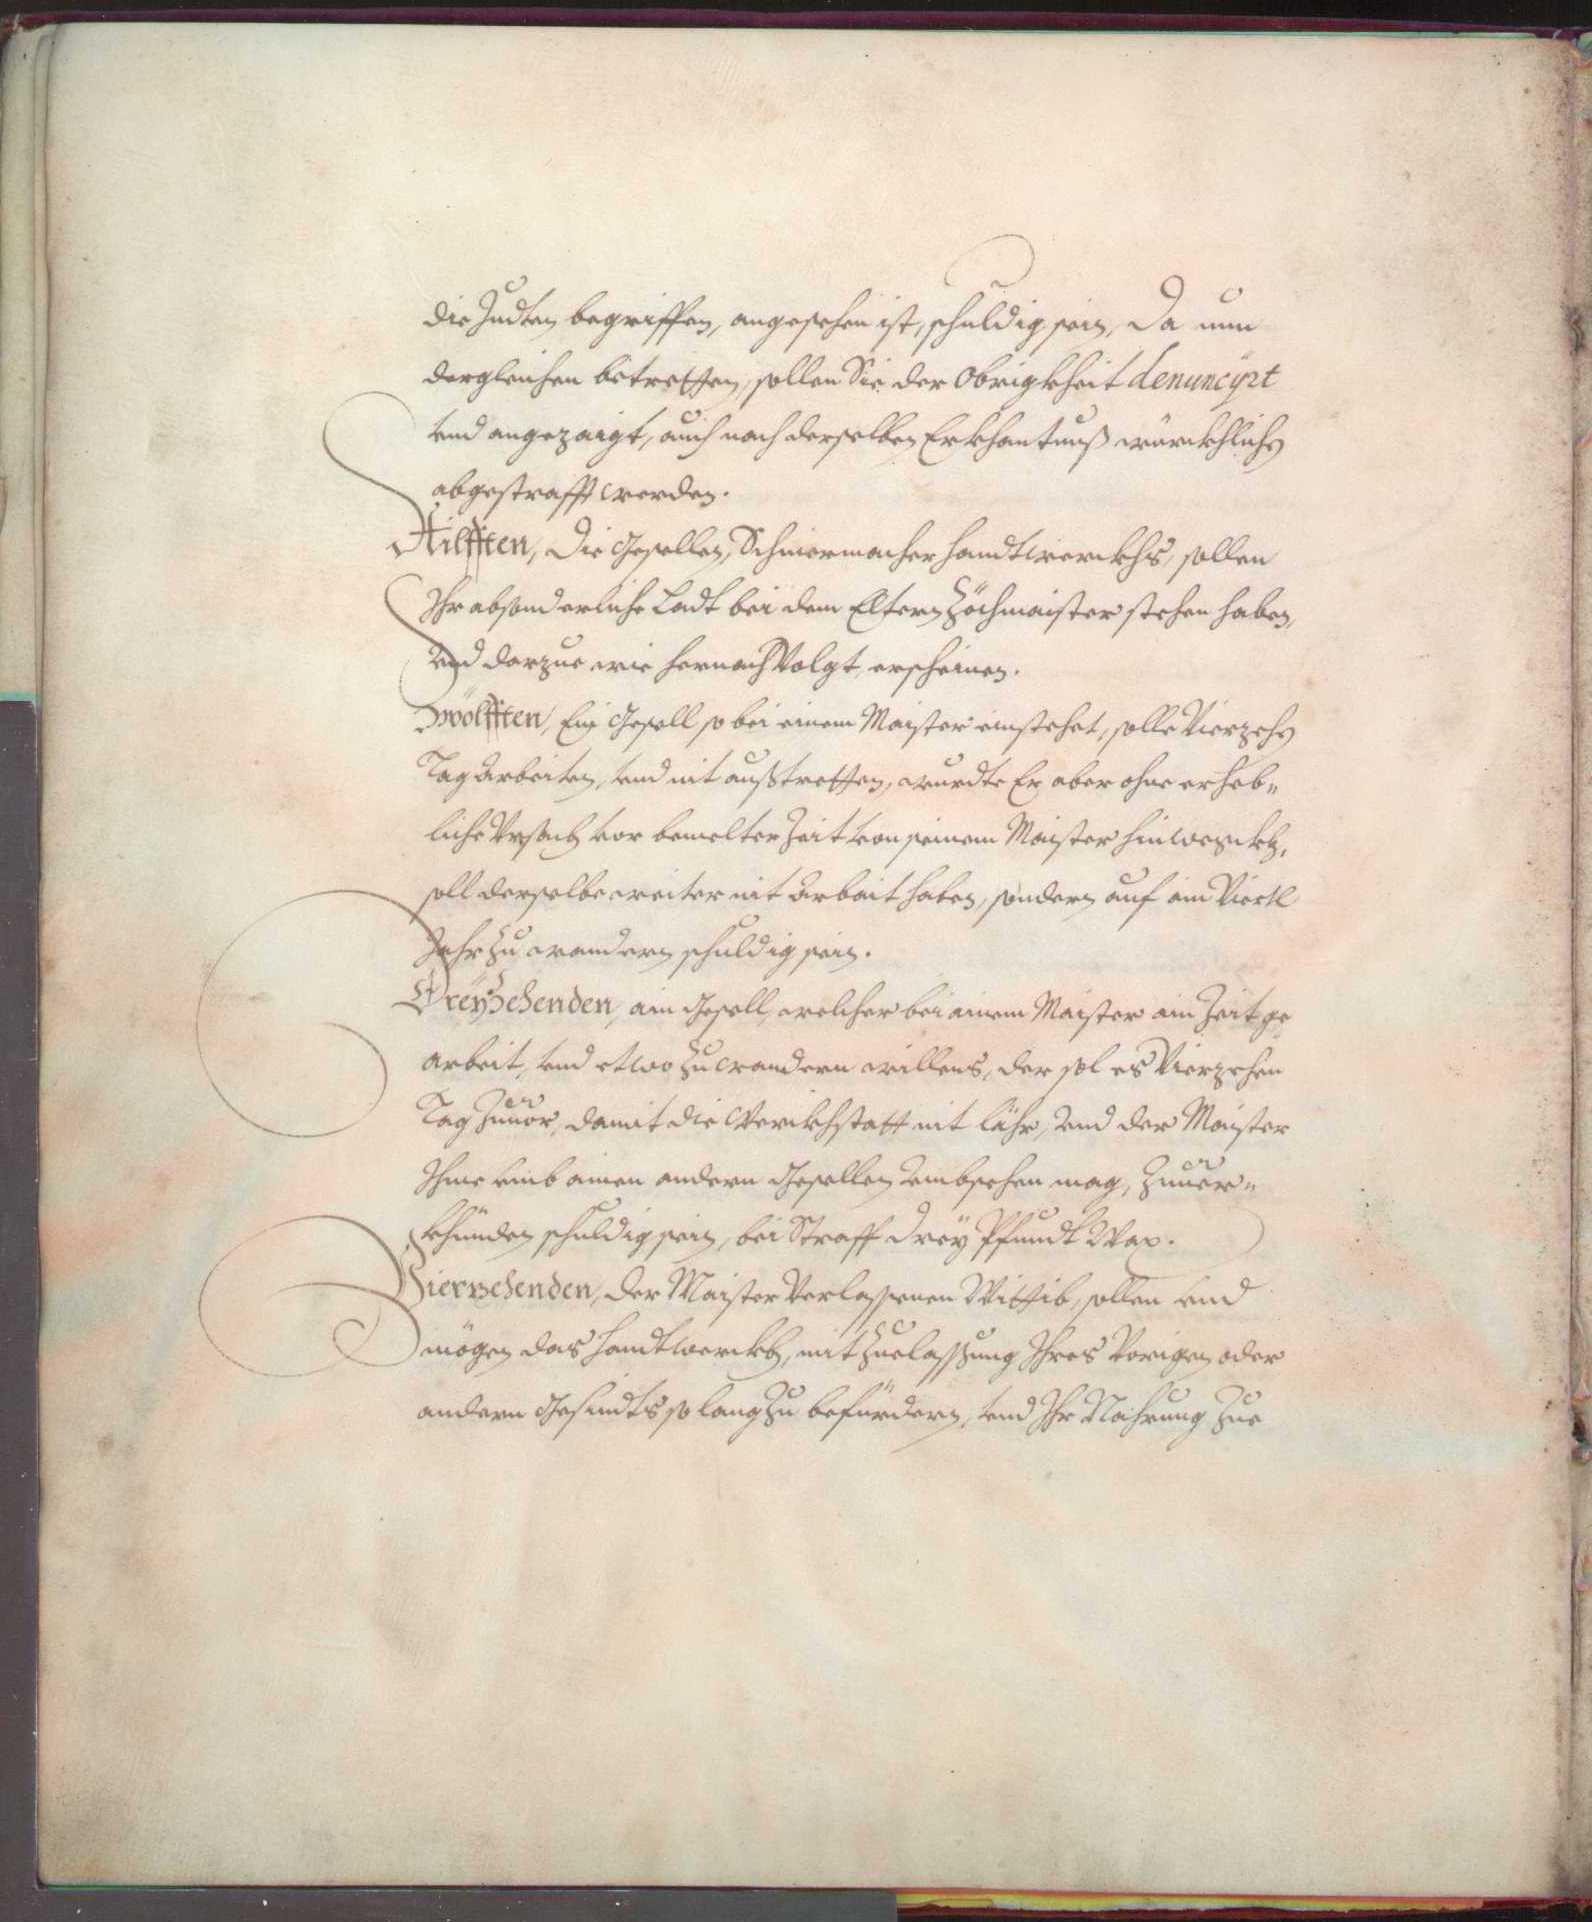 die Judten begriffen, angesehen ist, schuldig sein, Da nun
dergleichen betretten, sollen Sie der Obrigkheit denuncÿrt
vnd angezaigt, auch nach derselben Erkhantnuß würckhlich
abgestrafft werden.
Ailfften, Die Gesellen, Schnürmacher Handtwerckhs, sollen
Ihr absonderliche Ladt bei dem Eltern Zöchmaister stehen haben,
vnd darzue wie hernach Volgt, erscheinen.
Zwölfften, Ein Gesell so bei einem Maister einstehet, solle Vierzehn
Tag Arbeiten, vnd nit außtretten, wurdte Er aber ohne erheb„
liche Vrsach vor bemelter Zeit von seinem Maister hinweckh,
soll derselbe weiter nit Arbait haben, sondern auf ein Viertl
Jahr zu wandern schuldig sein.
Dreÿzehenden, ain Gesell, welcher bei ainem Maister ain Zeit ge
arbeit, vnd etwo zu wandern willens, der sol es Vierzehen
Tag Zuuor, damit die Werckhstatt nit lähr, vnd der Maister
Ihme vmb ainen andern Gesellen vmbsehen mag, Zuuer„
khünden schuldig sein, bei Straff dreÿ Pfundt Wax.
Vierzehenden, der Maister Verlassenen Wittib, sollen vnd
mögen das Handtwerckh, mit Zuelassung Ihres Vorigen oder
andern Gesindts so lang Zu befürdern, vnd Ihr Nahrung Zue